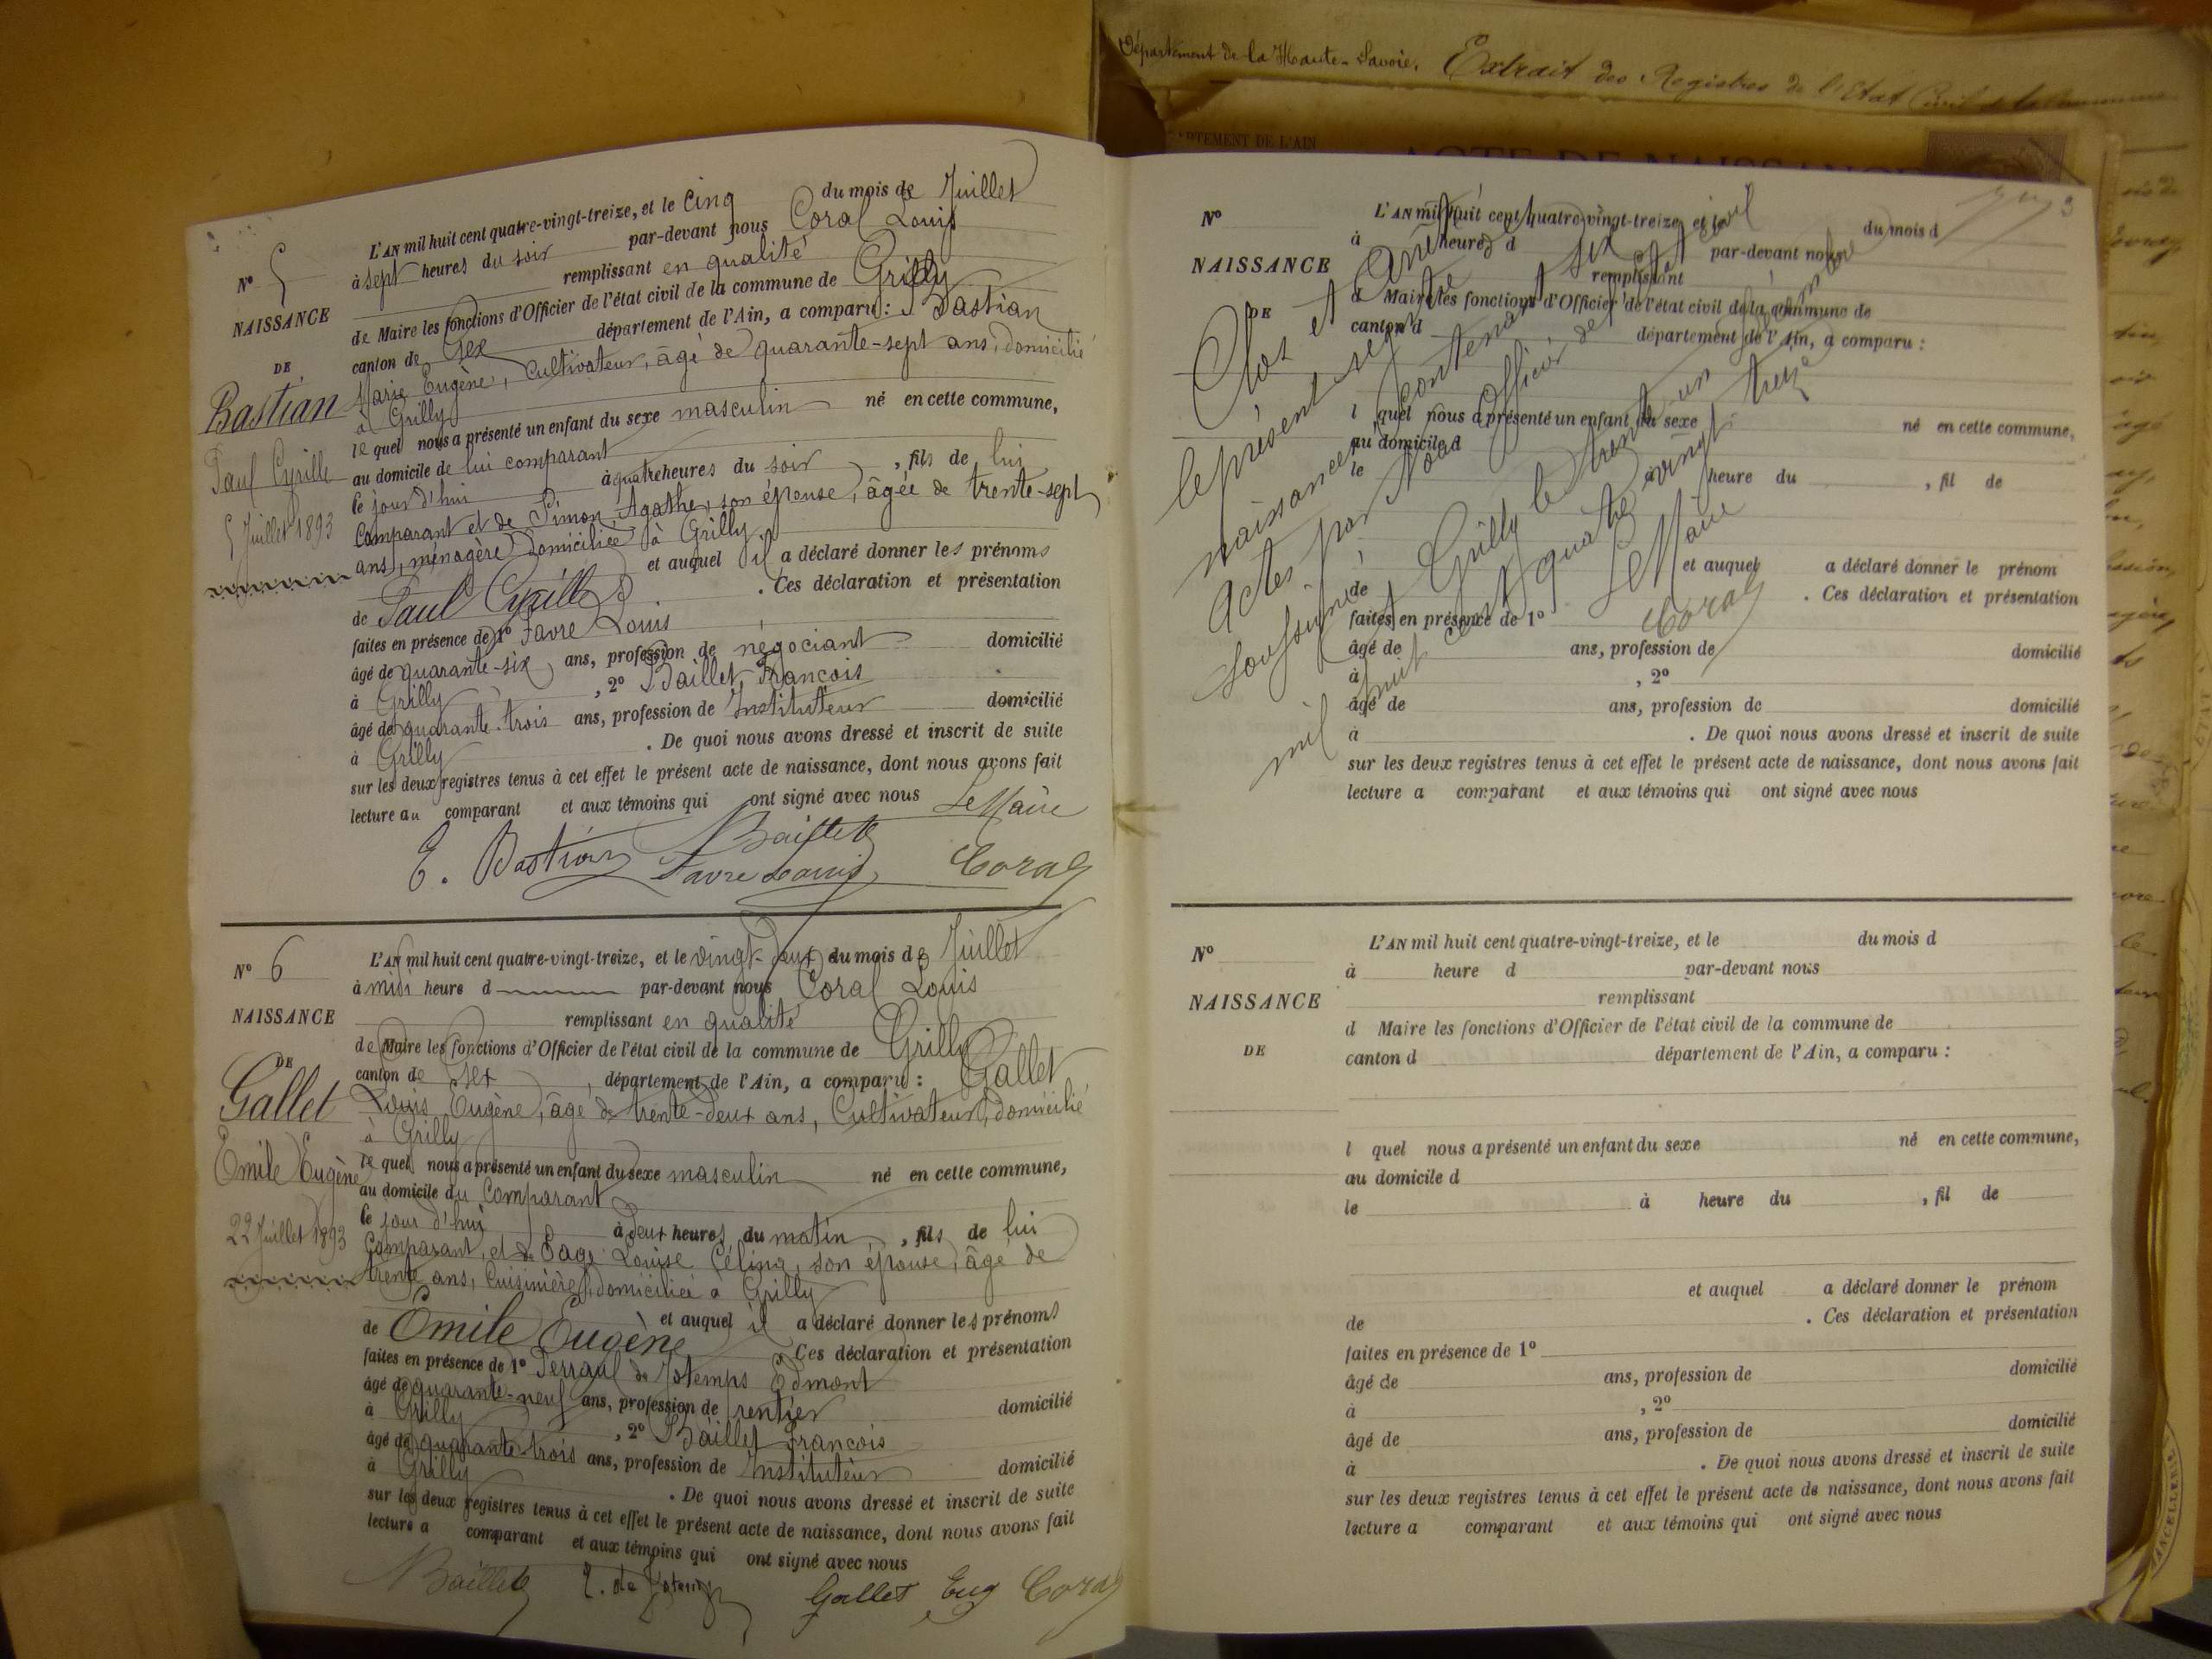 N° 5
NAISSANCE
DE
Bastian
Paul Cyrille
5 Juillet 1893
L'AN mil huit cent quatre-vingt-treize, et le cinq du mois de Juillet
à sept heures du soir par-devant nous Coral Louis
remplissant en qualité
de Maire les fonctions d'Officier de l'état civil de la commune de Grilly
canton de Gex département de l'Ain, a comparu : Bastian
Marie Eugène, Cultivateur, âgé de quarante-sept ans, domicilié
à Grilly
le quel nous a présenté un enfant du sexe masculin né en cette commune,
au domicile de lui comparant
le jour d'hui à quatre heures du soir , fils de lui
Comparant et de Simon Agathe, son épouse, âgée de trente-sept
ans, ménagère domiciliée à Grilly
et auquel il a déclaré donner les prénoms
de Paul Cyrille . Ces déclaration et présentation
faites en présence de 1° Favre Louis
âgé de quarante-six ans, profession de négociant domicilié
à Grilly , 2° Baillet, François
âgé de quarante-trois ans, profession de Instituteur domicilié
à Grilly . De quoi nous avons dressé et inscrit de suite
sur les deux registres tenus à cet effet le présent acte de naissance, dont nous avons fait
lecture au comparant et aux témoins qui ont signé avec nous Le Maire
E. Bastian Baillet
Favre Louis Coral
N° 6
NAISSANCE
DE
Gallet
Emile Eugène
22 Juillet 1893
L'AN mil huit cent quatre-vingt-treize, et le vingt-deux du mois de Juillet
à midi heure d par-devant nous Coral Louis
remplissant en qualité
de Maire les fonctions d'Officier de l'état civil de la commune de Grilly
canton de Gex , département de l'Ain, a comparu : Gallet
Louis Eugène, âgé de trente-deux ans, Cultivateur, domicilié
à Grilly
le quel nous a présenté un enfant du sexe masculin né en cette commune,
au domicile du Comparant
le jour d'hui à deux heures du matin , fils de lui
Comparant, et de Sage Louise Célina, son épouse, âgé de
trente ans, Cuisinière, domiciliée à Grilly
et auquel il a déclaré donner les prénoms
de Emile Eugène Ces déclaration et présentation
faites en présence de 1° Perraul de Jotemps Edmont
âgé de quarante-neuf ans, profession de rentier domicilié
à Grilly , 2° Baillet François
âgé de quarante-trois ans, profession de Instituteur domicilié
à Grilly . De quoi nous avons dressé et inscrit de suite
sur les deux registres tenus à cet effet le présent acte de naissance, dont nous avons fait
lecture a comparant et aux témoins qui ont signé avec nous
Baillet E. de Jotemps Gallet Eug Coral
Département de la Haute-Savoie. Extrait des Registres de l'Etat Civil de la Commune
DEPARTEMENT DE L'AIN
ACTE DE NAISSANCE
3
N°
NAISSANCE
DE
L'AN mil huit cent quatre-vingt-treize et le du mois d
à heure d par-devant nous
remplissant
d Maire les fonctions d'Officier de l'état civil de la commune de
canton d département de l'Ain, a comparu :
l quel nous a présenté un enfant du sexe né en cette commune,
au domicile d
le à heure du , fil de
et auquel a déclaré donner le prénom
de . Ces déclaration et présentation
faites en présence de 1°
âgé de ans, profession de domicilié
à , 2°
âgé de ans, profession de domicilié
à . De quoi nous avons dressé et inscrit de suite
sur les deux registres tenus à cet effet le présent acte de naissance, dont nous avons fait
lecture a comparant et aux témoins qui ont signé avec nous
Clos et arrêté
le présent registre
naissances, contenant six
actes par Nous Officier de l'état civil
soussigné,
à Grilly le trente un
mil huit cent quatre vingt treize
Le Maire
Coral
N°
NAISSANCE
DE
L'AN mil huit cent quatre-vingt-treize, et le du mois d
à heure d par-devant nous
remplissant
d Maire les fonctions d'Officier de l'état civil de la commune de
canton d département de l'Ain, a comparu :
l quel nous a présenté un enfant du sexe né en cette commune,
au domicile d
le à heure du , fil de
et auquel a déclaré donner le prénom
de . Ces déclaration et présentation
faites en présence de 1°
âgé de ans, profession de domicilié
à , 2°
âgé de ans, profession de domicilié
à . De quoi nous avons dressé et inscrit de suite
sur les deux registres tenus à cet effet le présent acte de naissance, dont nous avons fait
lecture a comparant et aux témoins qui ont signé avec nous